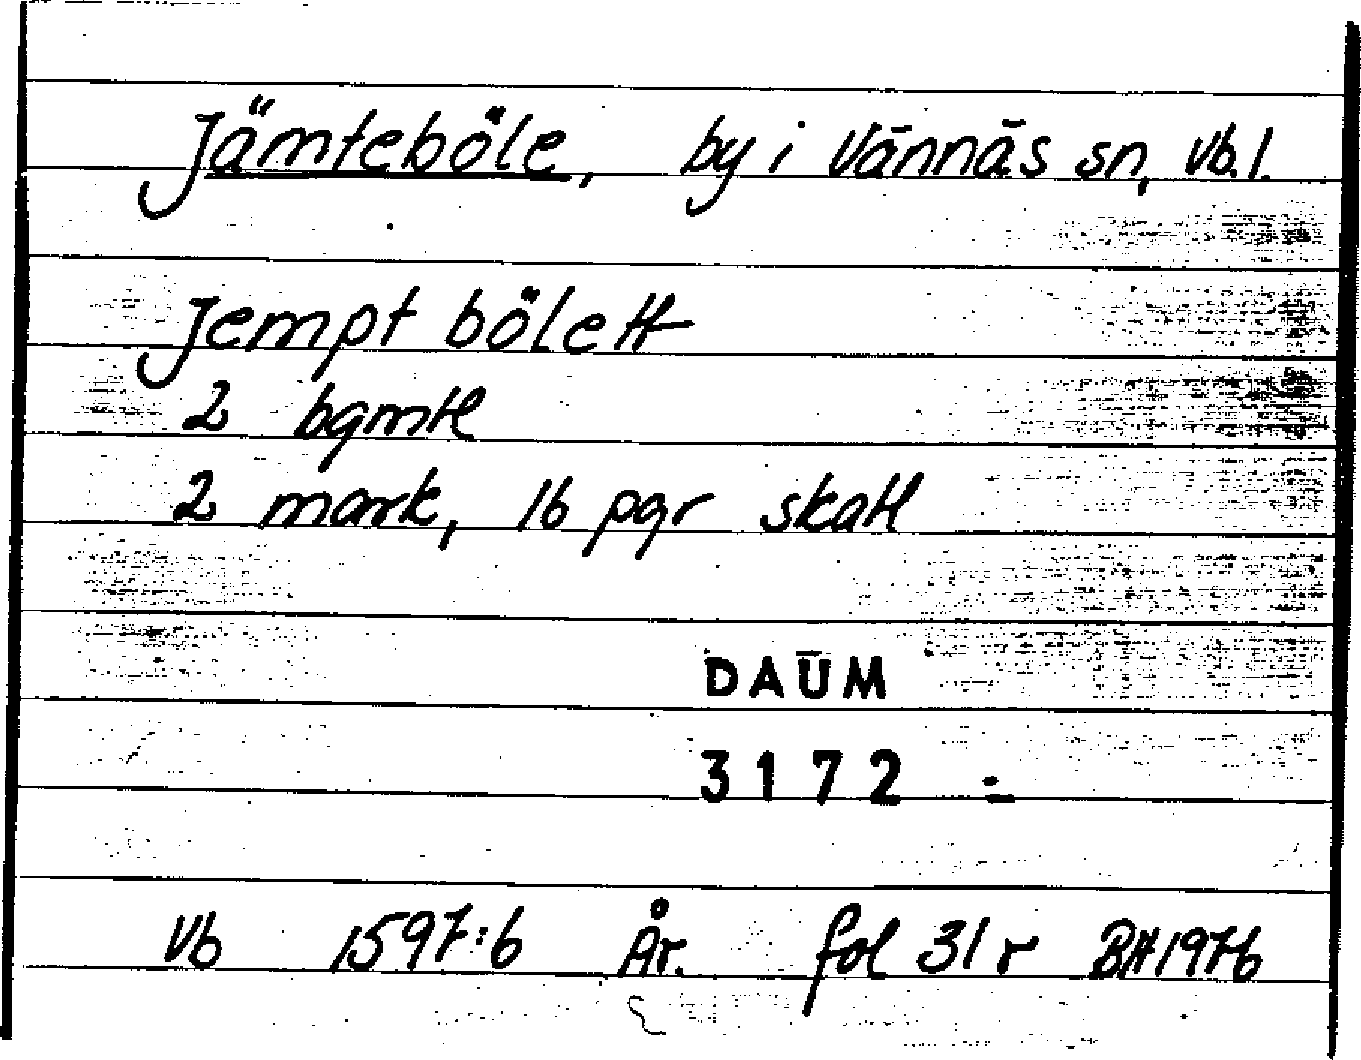 Jämteböle, by i Vännäs sn, Vb. l.
Jempt bölett
2 bgmtl
2 mark, 16 pgr skatt
DAUM
3172
Vb 1597:6 År. fol 31 r BH 1976